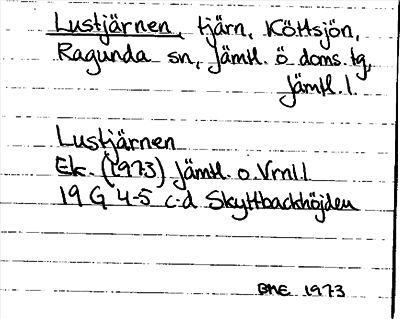 Lustjärnen, tjärn, Köttsjön,
Ragunda sn, Jämtl. ö doms. tg,
Jämtl. l.
Lustjärnen
Ek. (1973) Jämtl. o. Vrnl. l
19 G 4-5 c-d Skyttbackhöjden
BME 1973